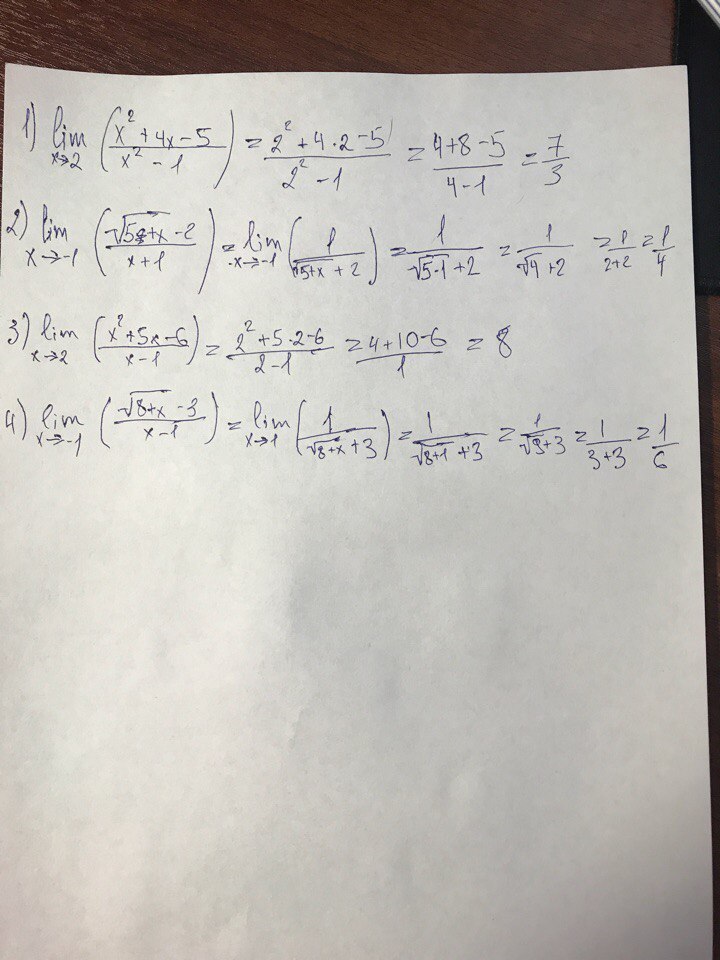 1) lim x→2 (x² + 4x - 5 / x² - 1) = 2² + 4 · 2 - 5 / 2² - 1 = 4+8-5 / 4-1 = 7/3
2) lim x→-1 (√5+x - 2 / x+1) = lim x→-1 (1 / √5+x + 2) = 1 / √5-1 + 2 = 1 / √4 + 2 = 1 / 2+2 = 1/4
3) lim x→2 (x² + 5x - 6 / x - 1) = 2² + 5 · 2 - 6 / 2 - 1 = 4 + 10 - 6 / 1 = 8
4) lim x→-1 (√8+x - 3 / x - 1) = lim x→1 (1 / √8+x + 3) = 1 / √8+1 + 3 = 1 / √9 + 3 = 1 / 3+3 = 1/6